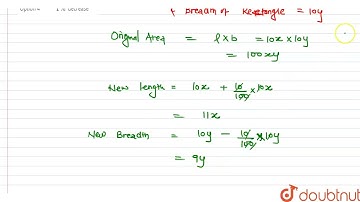 1% decrease
+ breadth of Rectangle = 10y
Original Area = l x b = 10x x 10y
= 100xy
New Length = 10x + 10/100 x 10x
= 11x
New Breadth = 10y - 10/100 x 10y
= 9y
doubtnut